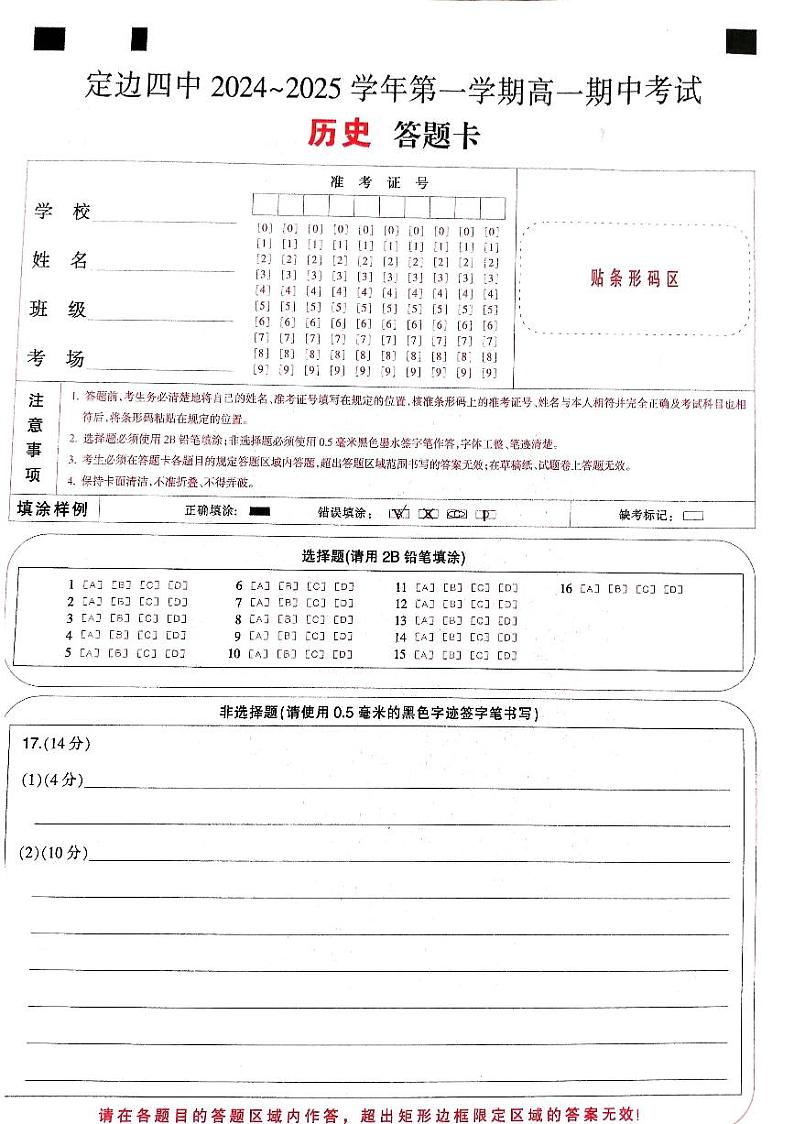 定边四中 2024~2025 学年第一学期高一期中考试
历史 答题卡
准 考 证 号
学 校
姓 名
班 级
考 场
[0] [0] [0] [0] [0] [0] [0] [0] [0] [0]
[1] [1] [1] [1] [1] [1] [1] [1] [1] [1]
[2] [2] [2] [2] [2] [2] [2] [2] [2] [2]
[3] [3] [3] [3] [3] [3] [3] [3] [3] [3]
[4] [4] [4] [4] [4] [4] [4] [4] [4] [4]
[5] [5] [5] [5] [5] [5] [5] [5] [5] [5]
[6] [6] [6] [6] [6] [6] [6] [6] [6] [6]
[7] [7] [7] [7] [7] [7] [7] [7] [7] [7]
[8] [8] [8] [8] [8] [8] [8] [8] [8] [8]
[9] [9] [9] [9] [9] [9] [9] [9] [9] [9]
贴条形码区
注意事项
1. 答题前,考生务必清楚地将自己的姓名、准考证号填写在规定的位置,核准条形码上的准考证号、姓名与本人相符并完全正确及考试科目也相
符后,将条形码粘贴在规定的位置。
2. 选择题必须使用2B铅笔填涂;非选择题必须使用0.5毫米黑色墨水签字笔作答,字体工整、笔迹清楚。
3. 考生必须在答题卡各题目的规定答题区域内答题,超出答题区域范围书写的答案无效;在草稿纸、试题卷上答题无效。
4. 保持卡面清洁,不准折叠、不得弄破。
填涂样例 正确填涂: 错误填涂: 缺考标记:
选择题(请用 2B 铅笔填涂)
1 [A] [B] [C] [D] 6 [A] [B] [C] [D] 11 [A] [B] [C] [D] 16 [A] [B] [C] [D]
2 [A] [B] [C] [D] 7 [A] [B] [C] [D] 12 [A] [B] [C] [D]
3 [A] [B] [C] [D] 8 [A] [B] [C] [D] 13 [A] [B] [C] [D]
4 [A] [B] [C] [D] 9 [A] [B] [C] [D] 14 [A] [B] [C] [D]
5 [A] [B] [C] [D] 10 [A] [B] [C] [D] 15 [A] [B] [C] [D]
非选择题(请使用 0.5 毫米的黑色字迹签字笔书写)
17.(14分)
(1)(4分)
(2)(10分)
请在各题目的答题区域内作答,超出矩形边框限定区域的答案无效!